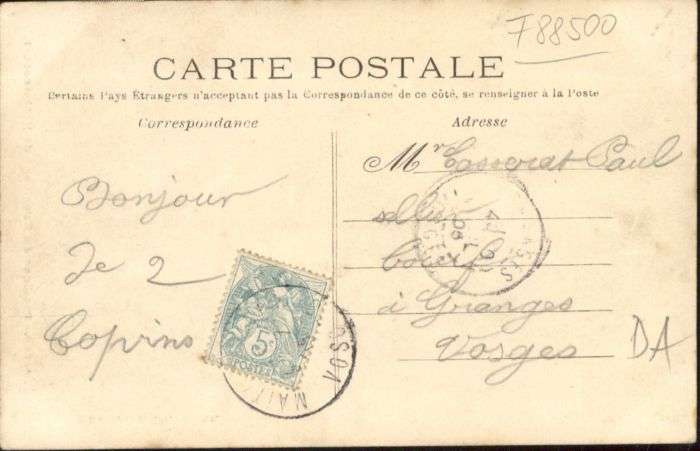 F88500
CARTE POSTALE
Certains Pays Étrangers n'acceptant pas la Correspondance de ce côté, se renseigner à la Poste
Correspondance
Adresse
Bonjour
de 2
Copvins
Mr Casserat Paul
à Granges
Vosges
DA
5c
POSTES